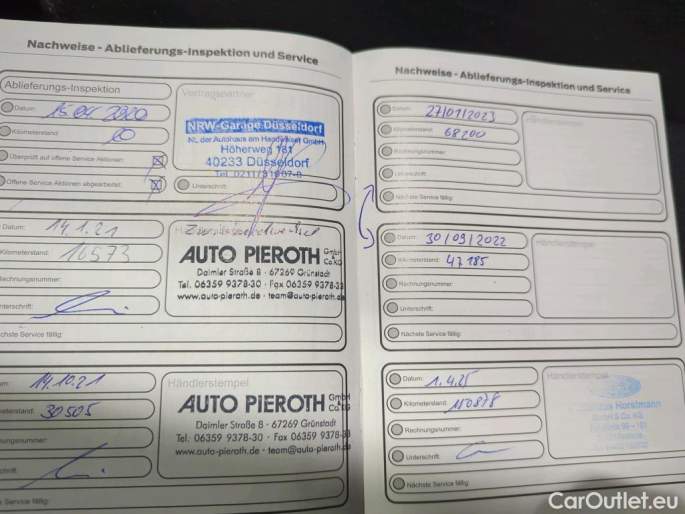 Nachweise - Ablieferungs-Inspektion und Service
Ablieferungs-Inspektion
Datum: 15.04.2020
Kilometerstand: 20
Überprüft auf offene Service Aktionen:
Offene Service Aktionen abgearbeitet:
Vertragspartner
NRW-Garage Düsseldorf
NL der Autohaus am Handweiser GmbH
Höherweg 181
40233 Düsseldorf
Unterschrift:
Datum: 14.1.21
Kilometerstand: 16573
Rechnungsnummer:
Unterschrift:
Nächste Service fällig:
AUTO PIEROTH GmbH & Co.KG
Daimler Straße 8 · 67269 Grünstadt
Tel. 06359 9378-30 · Fax 06359 9378-33
www.auto-pieroth.de · team@auto-pieroth.de
Datum: 14.10.21
Kilometerstand: 30505
Rechnungsnummer:
Unterschrift:
Nächste Service fällig:
Händlerstempel
AUTO PIEROTH GmbH & Co.KG
Daimler Straße 8 · 67269 Grünstadt
Tel. 06359 9378-30 · Fax 06359 9378-33
www.auto-pieroth.de · team@auto-pieroth.de
Nachweise - Ablieferungs-Inspektion und Service
Datum: 27/01/2023
Kilometerstand: 68200
Rechnungsnummer:
Unterschrift:
Nächste Service fällig:
Datum: 30/09/2022
Kilometerstand: 47185
Rechnungsnummer:
Unterschrift:
Nächste Service fällig:
Händlerstempel
Datum: 1.4.25
Kilometerstand: 110878
Rechnungsnummer:
Unterschrift:
Nächste Service fällig:
Händlerstempel
Horstmann
CarOutlet.eu